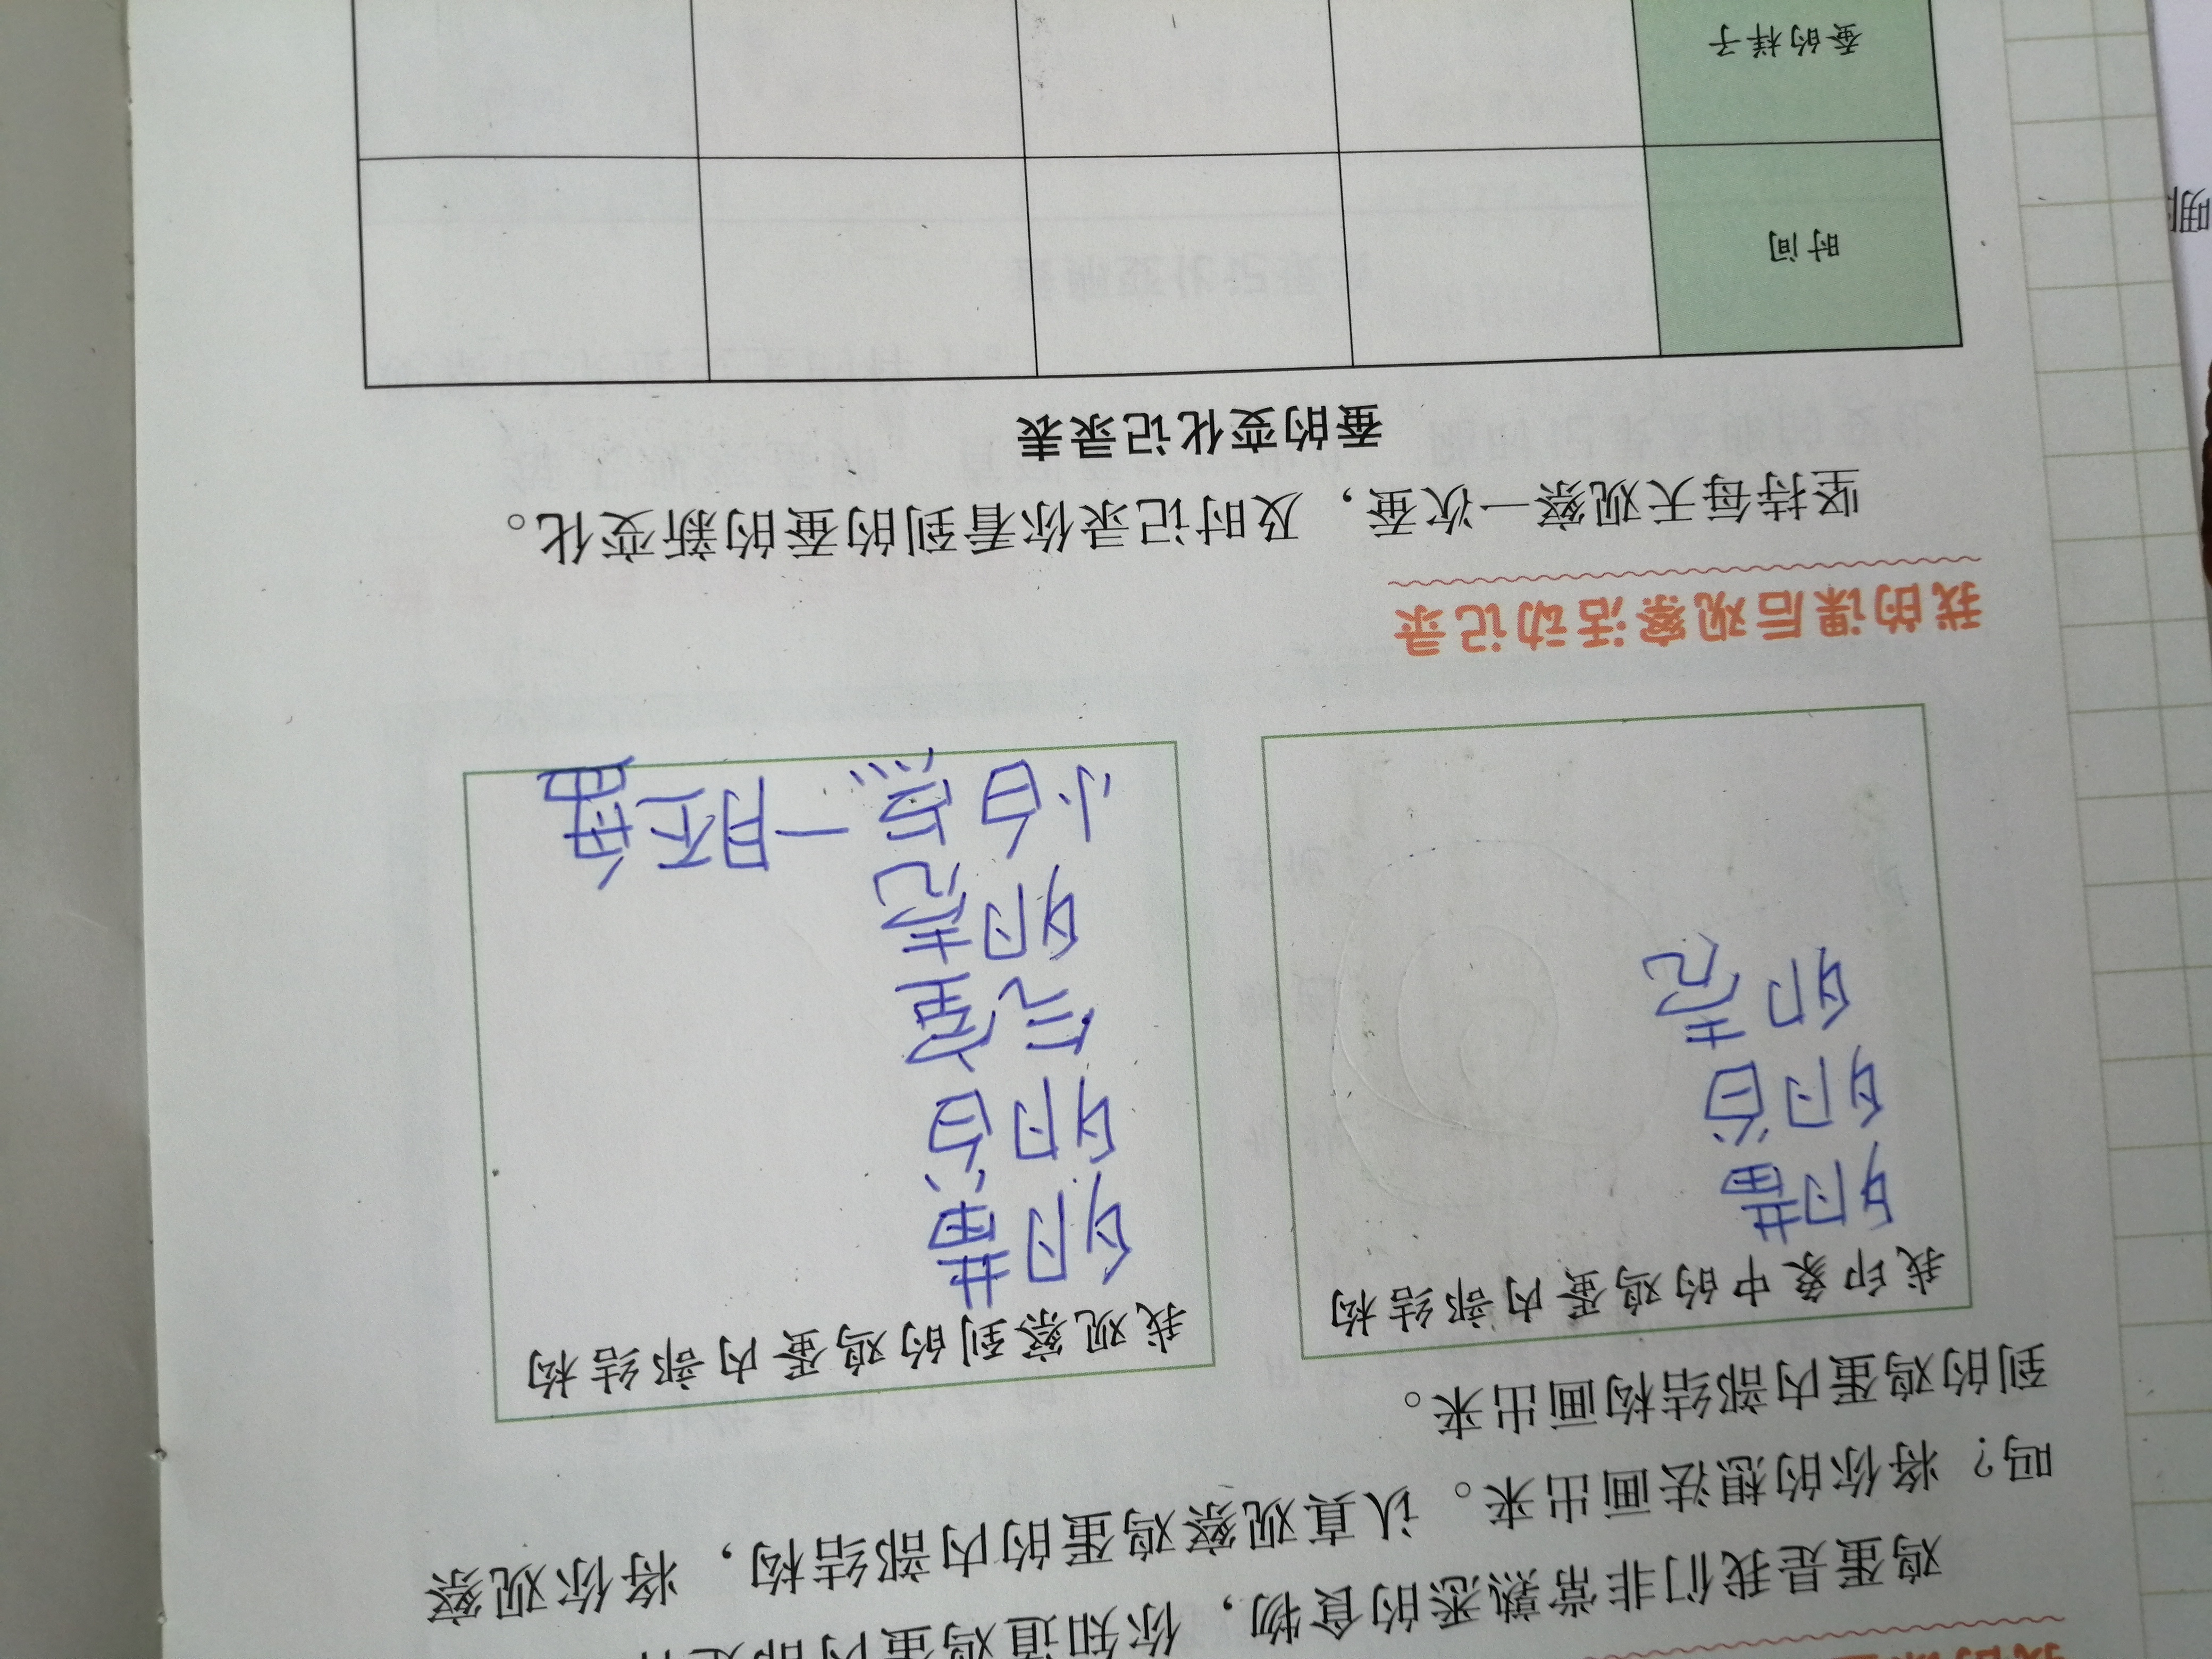 鸡蛋是我们非常熟悉的食物，你知道鸡蛋内部是什
吗？将你的想法画出来。认真观察鸡蛋的内部结构，将你观察
到的鸡蛋内部结构画出来。
我印象中的鸡蛋内部结构
卵黄
卵白
卵壳
我观察到的鸡蛋内部结构
卵黄
卵白
气室
卵壳
小白点一胚
我的课后观察活动记录
坚持每天观察一次蚕，及时记录你看到的蚕的新变化。
蚕的变化记录表
时间
蚕的样子